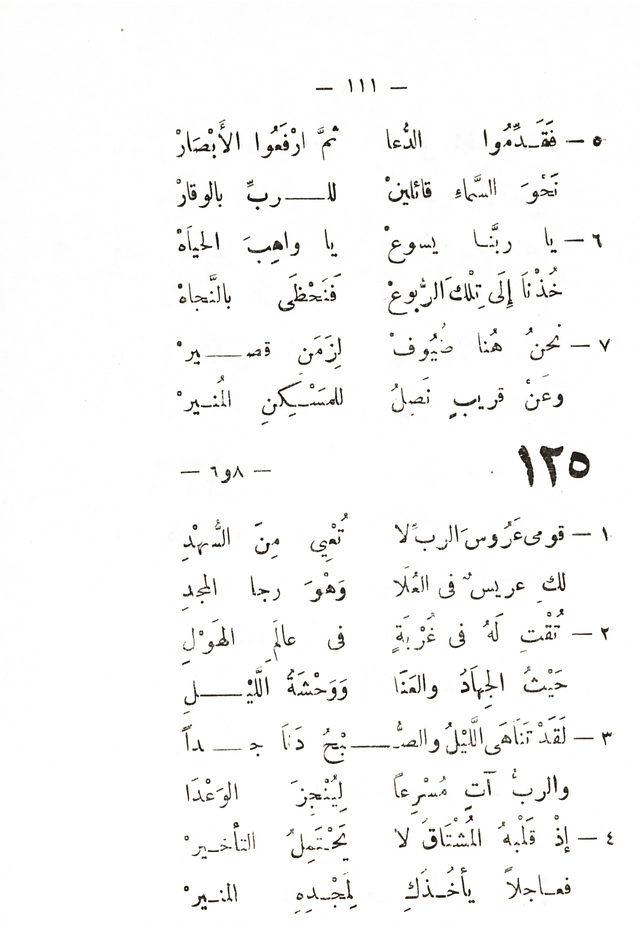 — ١١١ —
٥ — فَقَـدِّمُوا الدُّعا ثمَّ ارْفَعُوا الأَبْصَارْ
نَحْوَ السَّماءِ قائلينْ للـــربِّ بالوقارْ
٦ — يا ربَّنـا يسوعْ يا واهِبَ الحياَهْ
خُذْنَا إلَى تِلْكَ الرُّبوعْ فَنَحْظَى بالنَّجاهْ
٧ — نحنُ هُنا ضُيُوفْ لِزَمَنٍ قصـــيرْ
وعَنْ قريبٍ نَصِلُ للمَسْـكِنِ المُنـيرْ
١٢٥ — ٨و٦ —
١ — قومى عَرُوسَ الربِّ لا تُعْيِي مِنَ السُّهْدِ
لكِ عريسٌ فى العُلَا وَهْوَ رجا المجدِ
٢ — تُقْتِ لَهُ فى غُرْبَةٍ فى عالَمِ الهَوْلِ
حَيْثُ الجِهَادُ والعَنَا وَوَحْشَةُ اللَّيْـــلِ
٣ — لَقَدْ تَنَاهَى اللَّيْلُ والصُّـــبْحُ دَنَا جـــداً
والربُّ آتٍ مُسْرِعاً لِيُنْجِزَ الوَعْدَا
٤ — إذْ قَلْبُهُ المُشْتَاقُ لا يَحْتَمِلُ التأخـيرْ
فعـاجلاً يأخُـذَكِ لِمَجْـدِهِ المنـيرْ